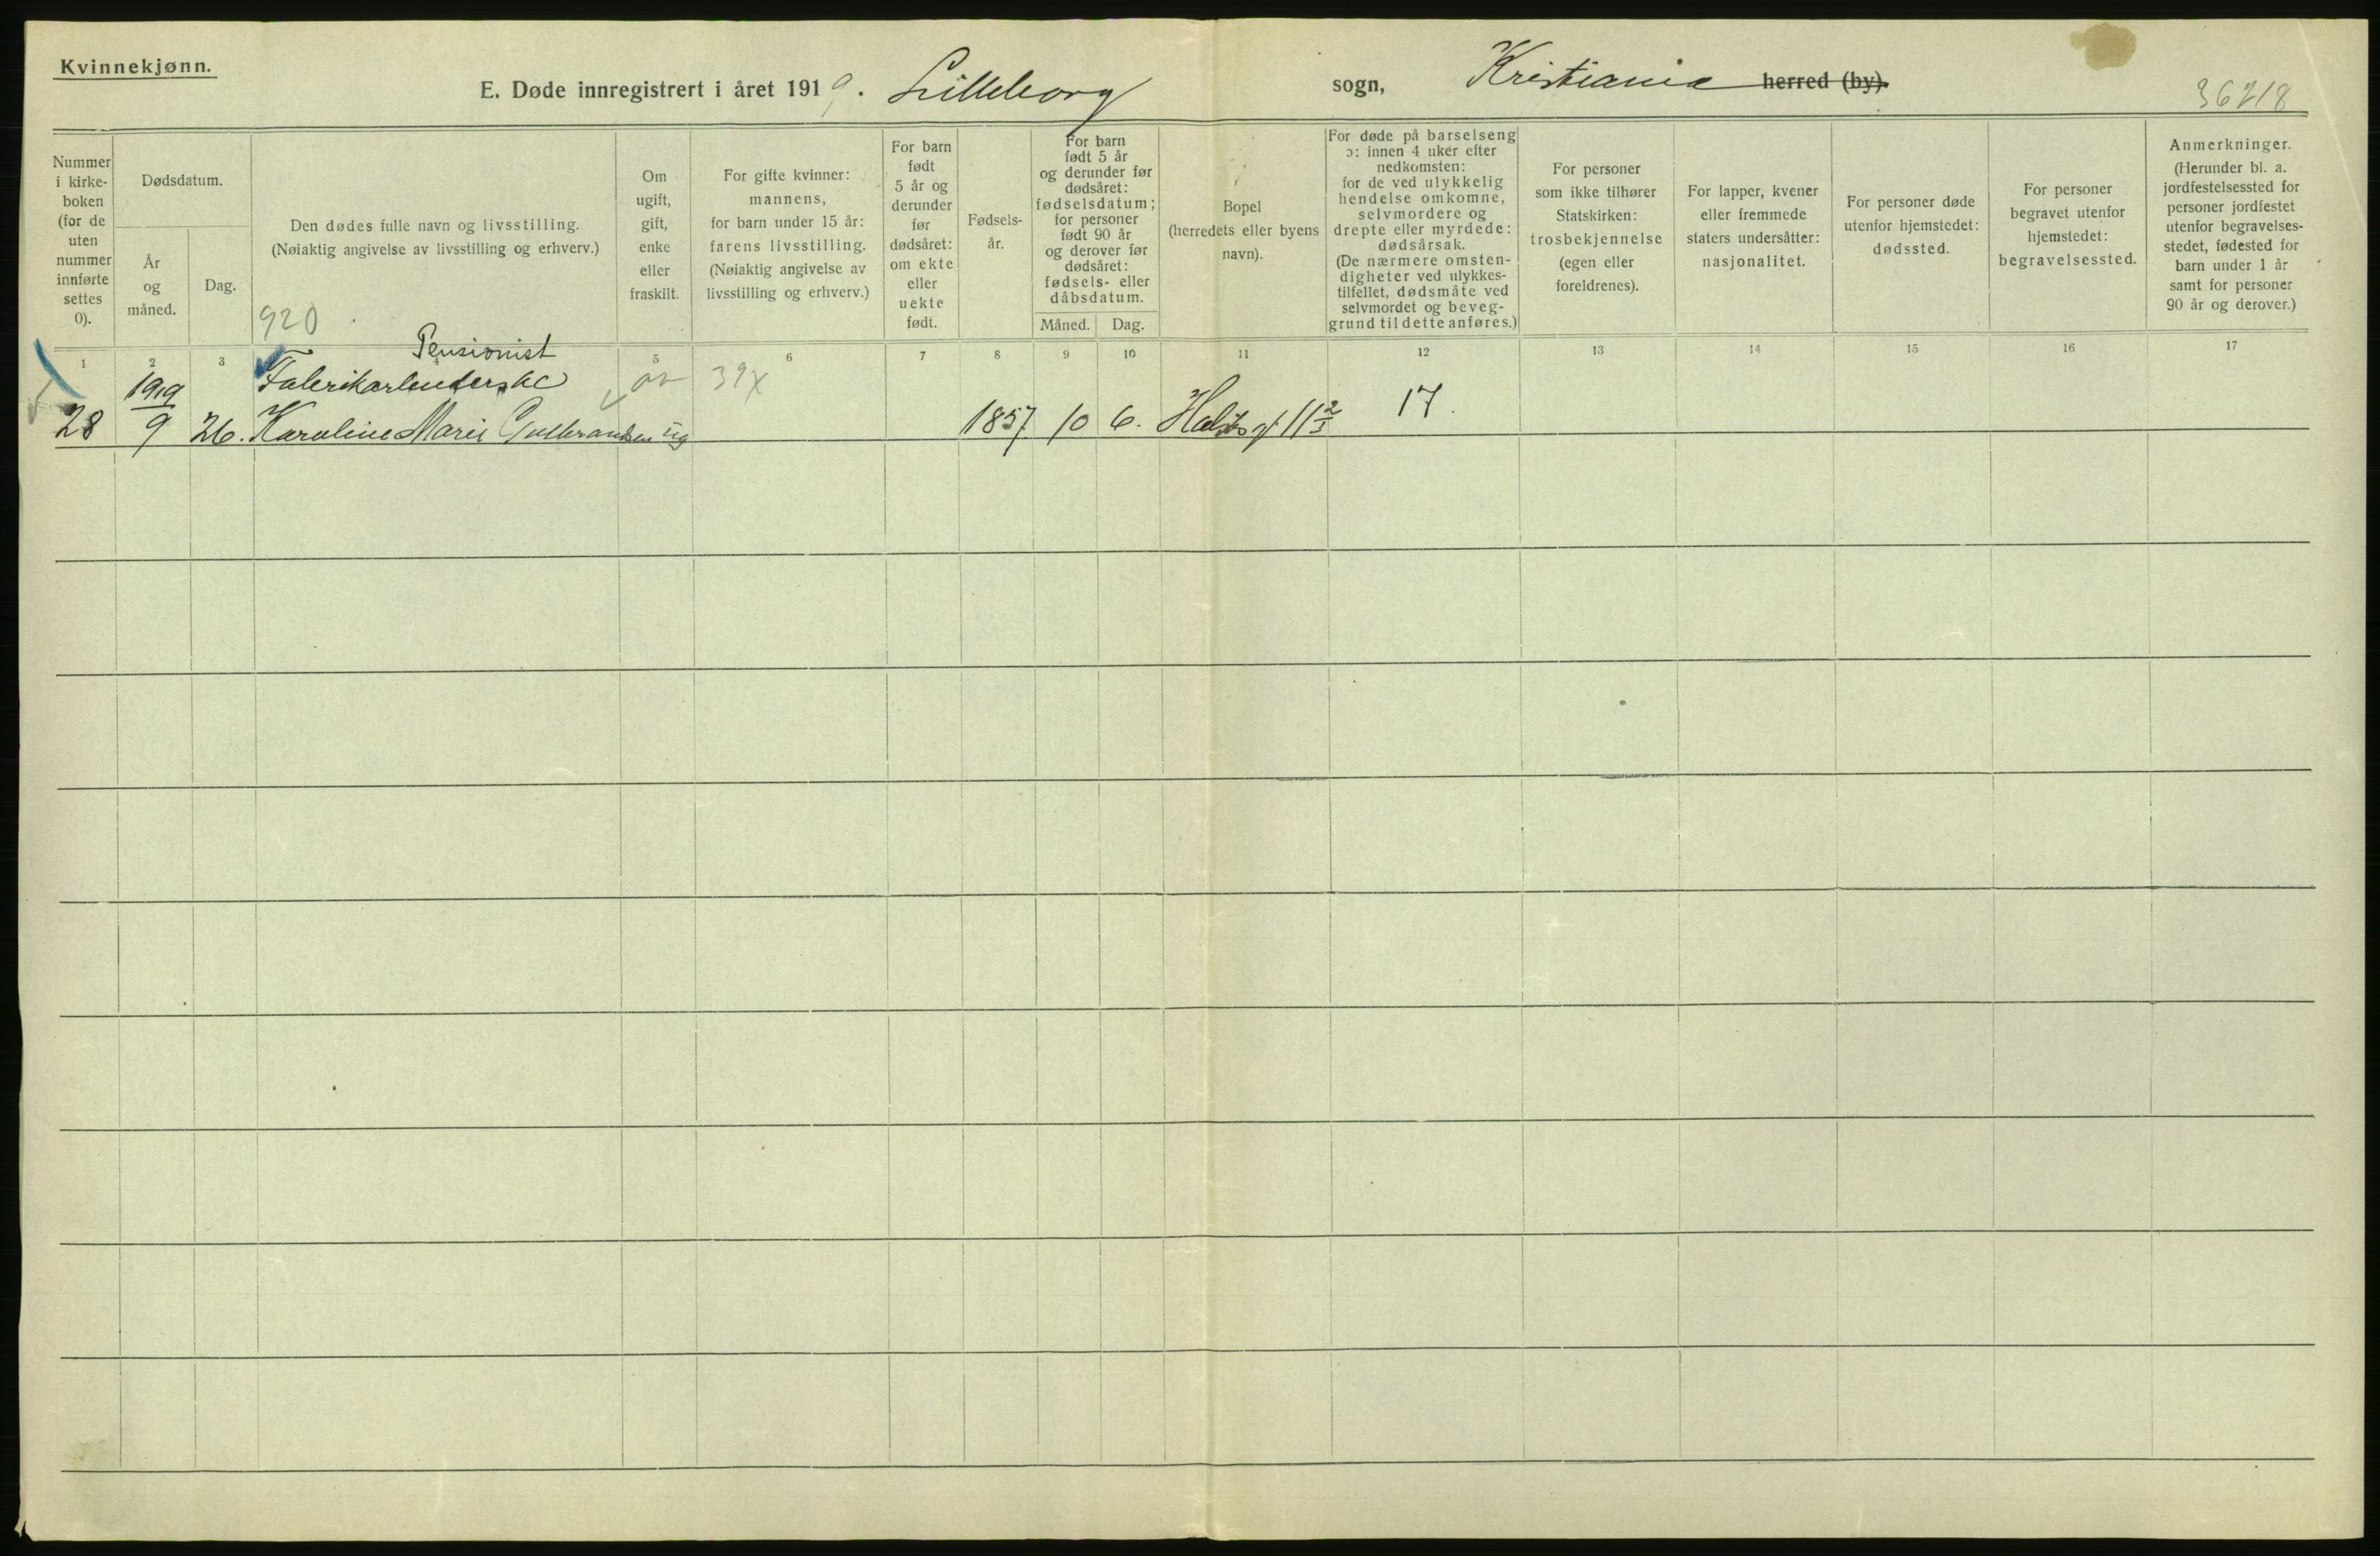 Kvinnekjønn.
E. Døde innregistrert i året 1919. Lilleborg sogn, Kristiania herred (by).
36218
Nummer i kirke- boken (for de uten nummer innførte settes 0).
Dødsdatum.
År og måned.
Dag.
Den dødes fulle navn og livsstilling.
(Nøiaktig angivelse av livsstilling og erhverv.)
920
Om ugift, gift, enke eller fraskilt.
For gifte kvinner: mannens, for barn under 15 år: farens livsstilling. (Nøiaktig angivelse av livsstilling og erhverv.)
For barn født 5 år og derunder før dødsåret: om ekte eller uekte født.
Fødsels- år.
For barn født 5 år og derunder før dødsåret: fødselsdatum; for personer født 90 år og derover før dødsåret: fødsels- eller dåbsdatum.
Måned. Dag.
Bopel (herredets eller byens navn).
For døde på barselseng ɔ: innen 4 uker efter nedkomsten: for de ved ulykkelig hendelse omkomne, selvmordere og drepte eller myrdede: dødsårsak. (De nærmere omsten- digheter ved ulykkes- tilfellet, dødsmåte ved selvmordet og beveg- grund til dette anføres.)
For personer som ikke tilhører Statskirken: trosbekjennelse (egen eller foreldrenes).
For lapper, kvener eller fremmede staters undersåtter: nasjonalitet.
For personer døde utenfor hjemstedet: dødssted.
For personer begravet utenfor hjemstedet: begravelsessted.
Anmerkninger. (Herunder bl. a. jordfestelsessted for personer jordfestet utenfor begravelses- stedet, fødested for barn under 1 år samt for personer 90 år og derover.)
1 2 3 5 6 7 8 9 10 11 12 13 14 15 16 17
Pensionist
1919 Fabrikarbeiderske 39x
28 9 26. Karoline Marie Gulbrandsen ug 1857. 10 6. 11 17.